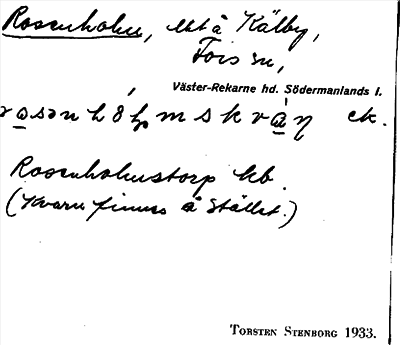 Rosenholm, utt å Kälby,
Tors sn,
Väster-Rekarne hd. Södermanlands l.
ek.
Rosenholmstorp kb.
(Kvarn finnes å stället.)
TORSTEN STENBORG 1933.